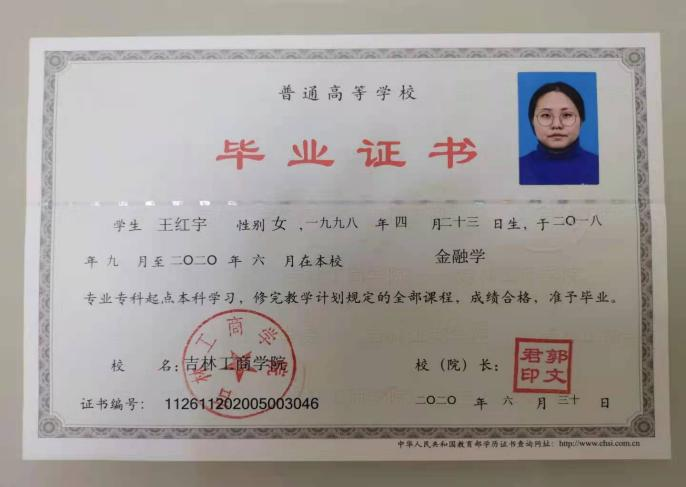 普通高等学校
毕业证书
学生 王红宇 性别 女，一九九八 年 四 月 二十三 日生，于 二〇一八
年 九 月至 二〇二〇 年 六 月在本校 金融学
专业专科起点本科学习，修完教学计划规定的全部课程，成绩合格，准予毕业。
校 名：吉林工商学院 校（院）长：
吉林工商学院
郭文君印
证书编号： 112611202005003046 二〇二〇 年 六 月 三十 日
中华人民共和国教育部学历证书查询网址：http://www.chsi.com.cn